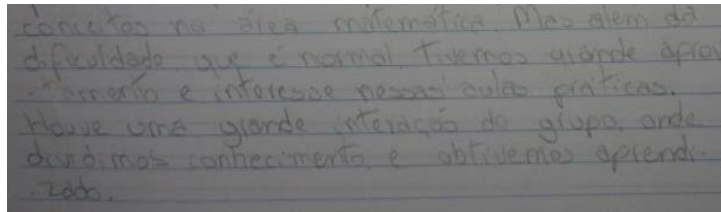 conceitos na área matemática. Mas além da
dificuldade que é normal, tivemos grande aprovei
-tamento e interesse nessas aulas práticas.
Houve uma grande interação do grupo, onde
dividimos conhecimento e obtivemos aprendi-
-zado.